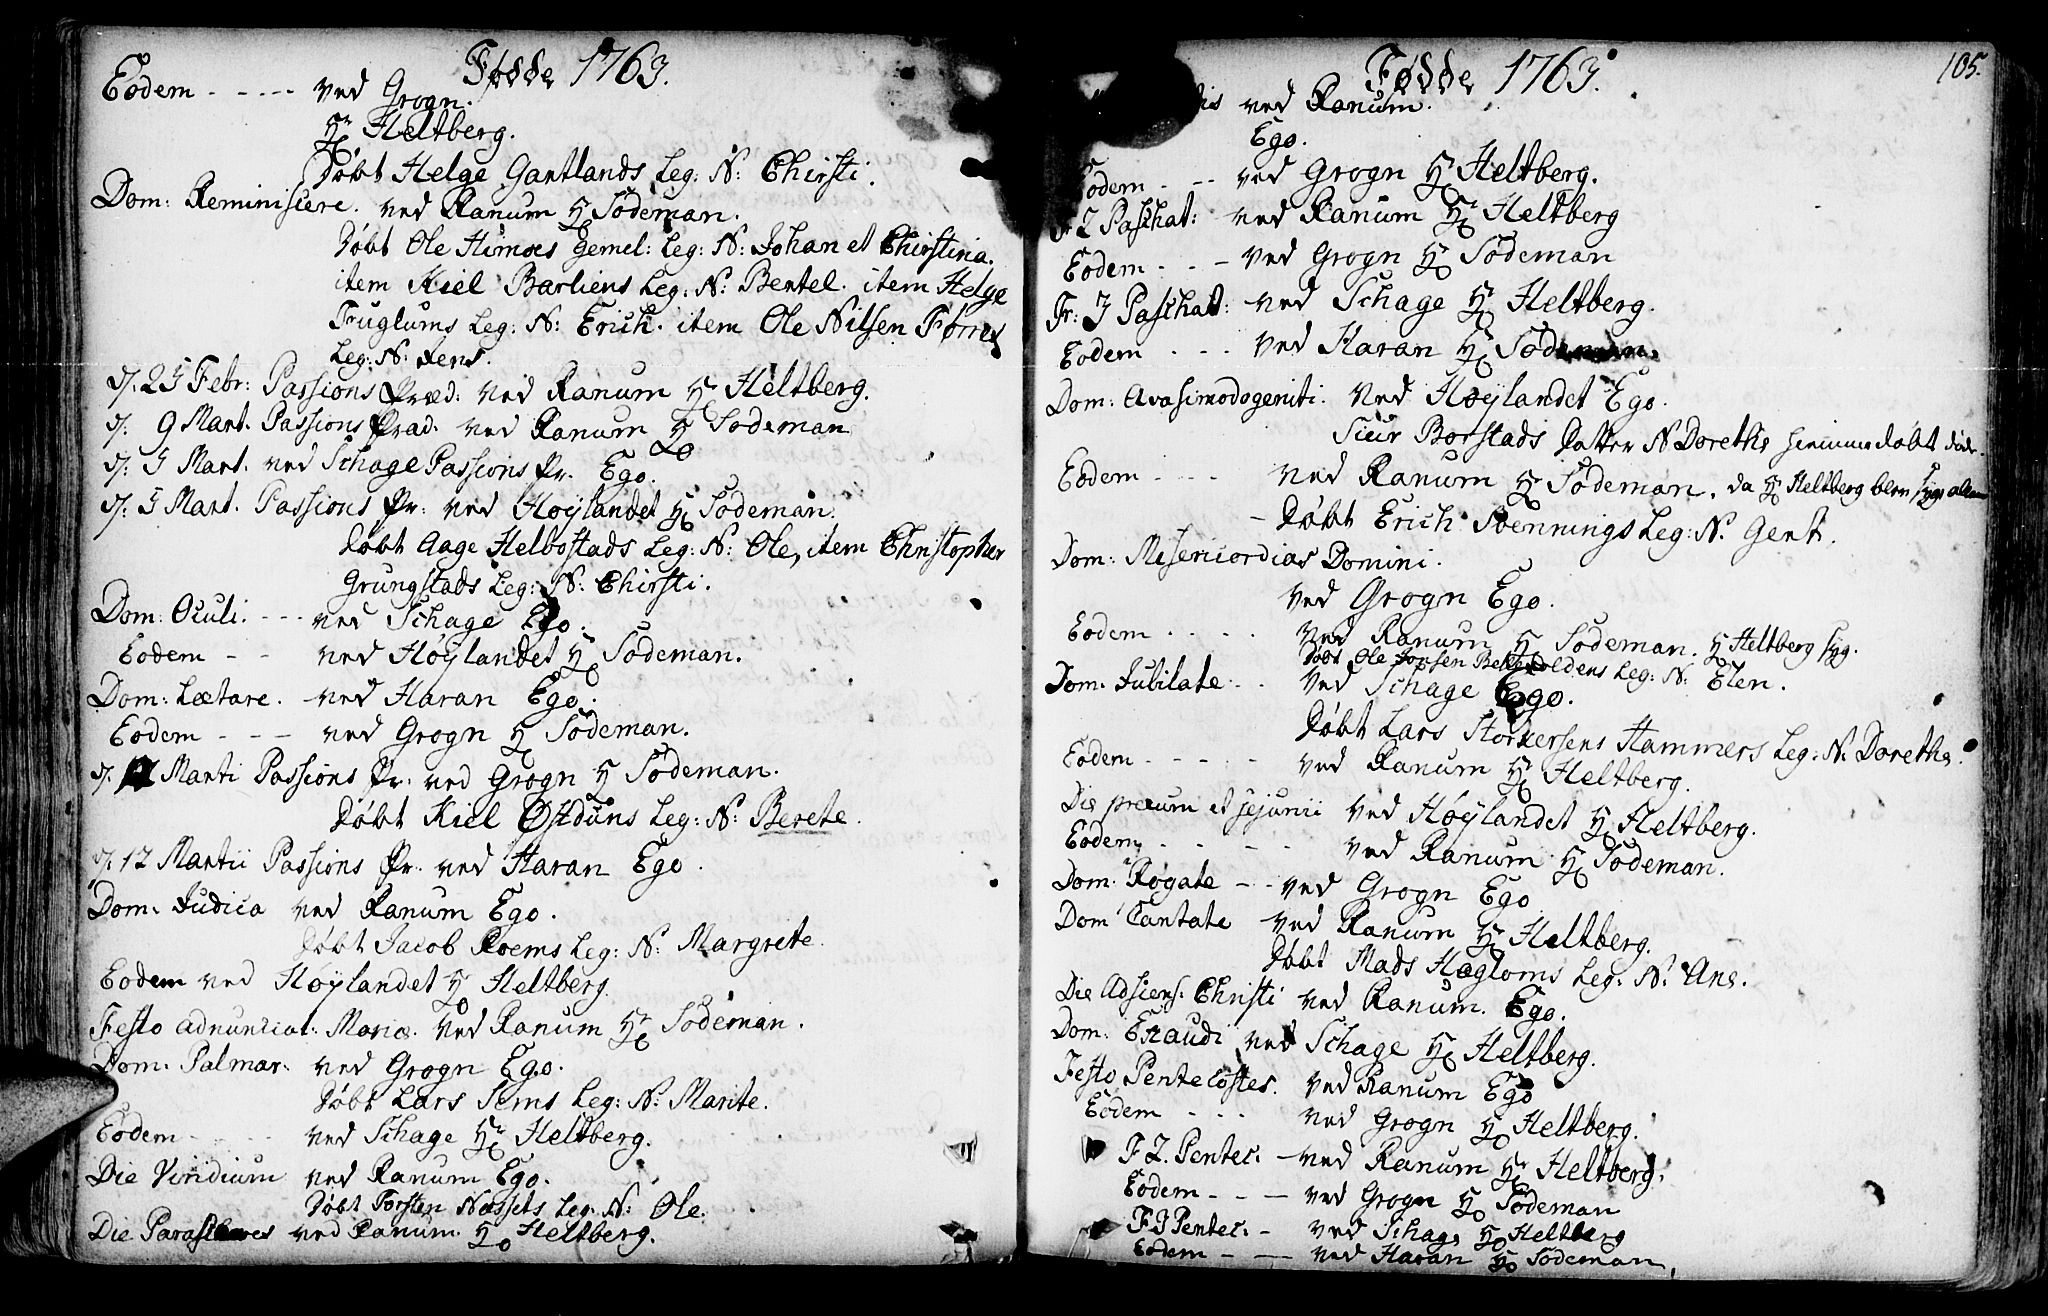 Fødde 1763.
Eodem - - - - ved Grogn.
Hr Heltberg.
Døbt Helge Gartlands Leg: N: Chirsti.
Dom: Reminiscere. ved Ranum Hr Sodeman.
Døbt Ole Himoes Gemel: Leg: N: Johan et Chirstina.
item Kiel Barliens Leg: N: Bentel. item Helge
Truglums Leg: N: Erich. item Ole Nilsen Førres
Leg: N: Jens.
d. 23 Febr: Passions Præd: ved Ranum Hr Heltberg.
d. 9 Mart. Passions Præd. ved Ranum Hr Sodeman
d. 3 Mart. ved Schage Passions Pr. Ego.
d. 3 Mart. Passions Pr: ved Høylandet Hr Sodeman.
Døbt Aage Helbostads Leg: N: Ole, item Christopher
Grungstads Leg: N: Chirsti.
Dom: Oculi. - - - ved Schage Ego.
Eodem - - ved Høylandet Hr Sodeman.
Dom: Lætare. - ved Haran Ego.
Eodem - - - ved Grogn Hr Sodeman.
d. Marti Passions Pr: ved Grogn Hr Sodeman.
Døbt Kiel Østduns Leg: N: Berete.
d. 17 Martii Passions Pr. ved Haran Ego.
Dom: Judica ved Ranum Ego.
Døbt Jacob Roems Leg: N: Margrete.
Eodem ved Høylandet Hr Heltberg.
Festo Adnunciat: Mariæ. ved Ranum Hr Sodeman.
Dom: Palmar. ved Grogn Ego.
Døbt Lars Sems Leg: N: Marite.
Eodem - - - - ved Schage Hr Heltberg.
Die Viridium ved Ranum Ego.
Døbt Torsten Nossets Leg: N: Ole.
Die Parasceves ved Ranum. Hr Heltberg.
105.
Fødde 1763.
ved Ranum.
Ego.
Eodem - - - ved Grogn Hr Heltberg.
Fr 2 Paschat: ved Ranum Hr Heltberg
Eodem - - - ved Grogn Hr Sodeman
Fr: 3 Paschat: ved Schage Hr Heltberg.
Eodem - - - ved Haran Hr Sodeman.
Dom: Qvasimodogeniti. ved Høylandet Ego.
Sieur Borstads Datter N Dorethe hiemmedøbt døde.
Eodem - - - ved Ranum Hr Sodeman. da Hr Heltberg blev syg
- Døbt Erich Svennings Leg: N: Gert.
Dom: Misericordias Domini.
ved Grogn Ego.
Eodem - - - - ved Ranum Hr Sodeman. Hr Heltberg syg.
Døbt Ole Leg: N: Elen.
Dom: Jubilate - - ved Schage Ego.
Døbt Lars Storkersens Hammers Leg: N: Dorethe.
Eodem - - - - - ved Ranum Hr Heltberg.
Die precum et jejunii ved Høylandet Hr Heltberg.
Eodem - - - - ved Ranum Hr Sodeman.
Dom: Rogate - - ved Grogn Ego
Dom Cantate ved Ranum Hr Heltberg.
Døbt Mads Hagloms Leg: N: Ane.
Die Adscens: Christi ved Ranum. Ego.
Dom: Exaudi ved Schage Hr Heltberg.
Festo Pentecostes. ved Ranum Ego
Eodem - - - ved Grogn Hr Heltberg.
F 2. Pentec: - ved Ranum Hr Heltberg.
Eodem - - - ved Grogn Hr Sodeman
F 3 Pentec: - ved Schage Hr Heltberg
Eodem - - - ved Haran Hr Sodeman.